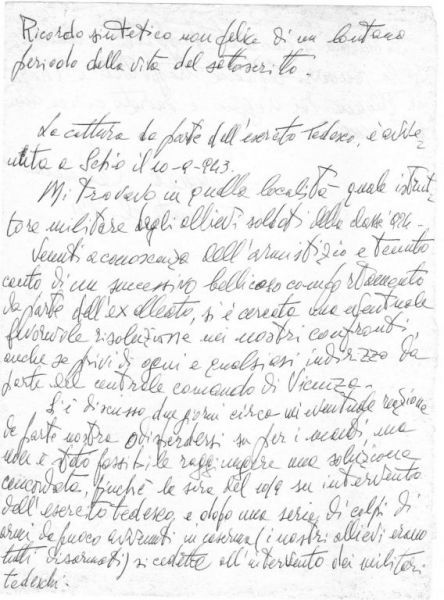 Ricordo sintetico non felice di un lontano
periodo della vita del sottoscritto.
La cattura da parte dell'esercito Tedesco, è avve-
nuta a Schio il 10-9-943.
Mi trovavo in quella località quale istrut-
tore militare degli allievi soldati della classe 924-
Venuti a conoscenza dell'armistizio e tenuto
conto di un successivo bellicoso comportamento
da parte dell'ex alleato, si è cercata una eventuale
favorevole risoluzione nei nostri confronti,
anche se privi di ogni e qualsiasi indirizzo da
parte del centrale comando di Vicenza.
Si è discusso due giorni circa un'eventuale reazione
da parte nostra o disperdersi su per i monti ma
non è stato possibile raggiungere una soluzione
concordata, finchè la sera del 10/9 su intervento
dell'esercito tedesco, e dopo una serie di colpi di
armi da fuoco avvenuti in caserma (i nostri allievi erano
tutti disarmati) si cedette all'intervento dei militari
tedeschi.